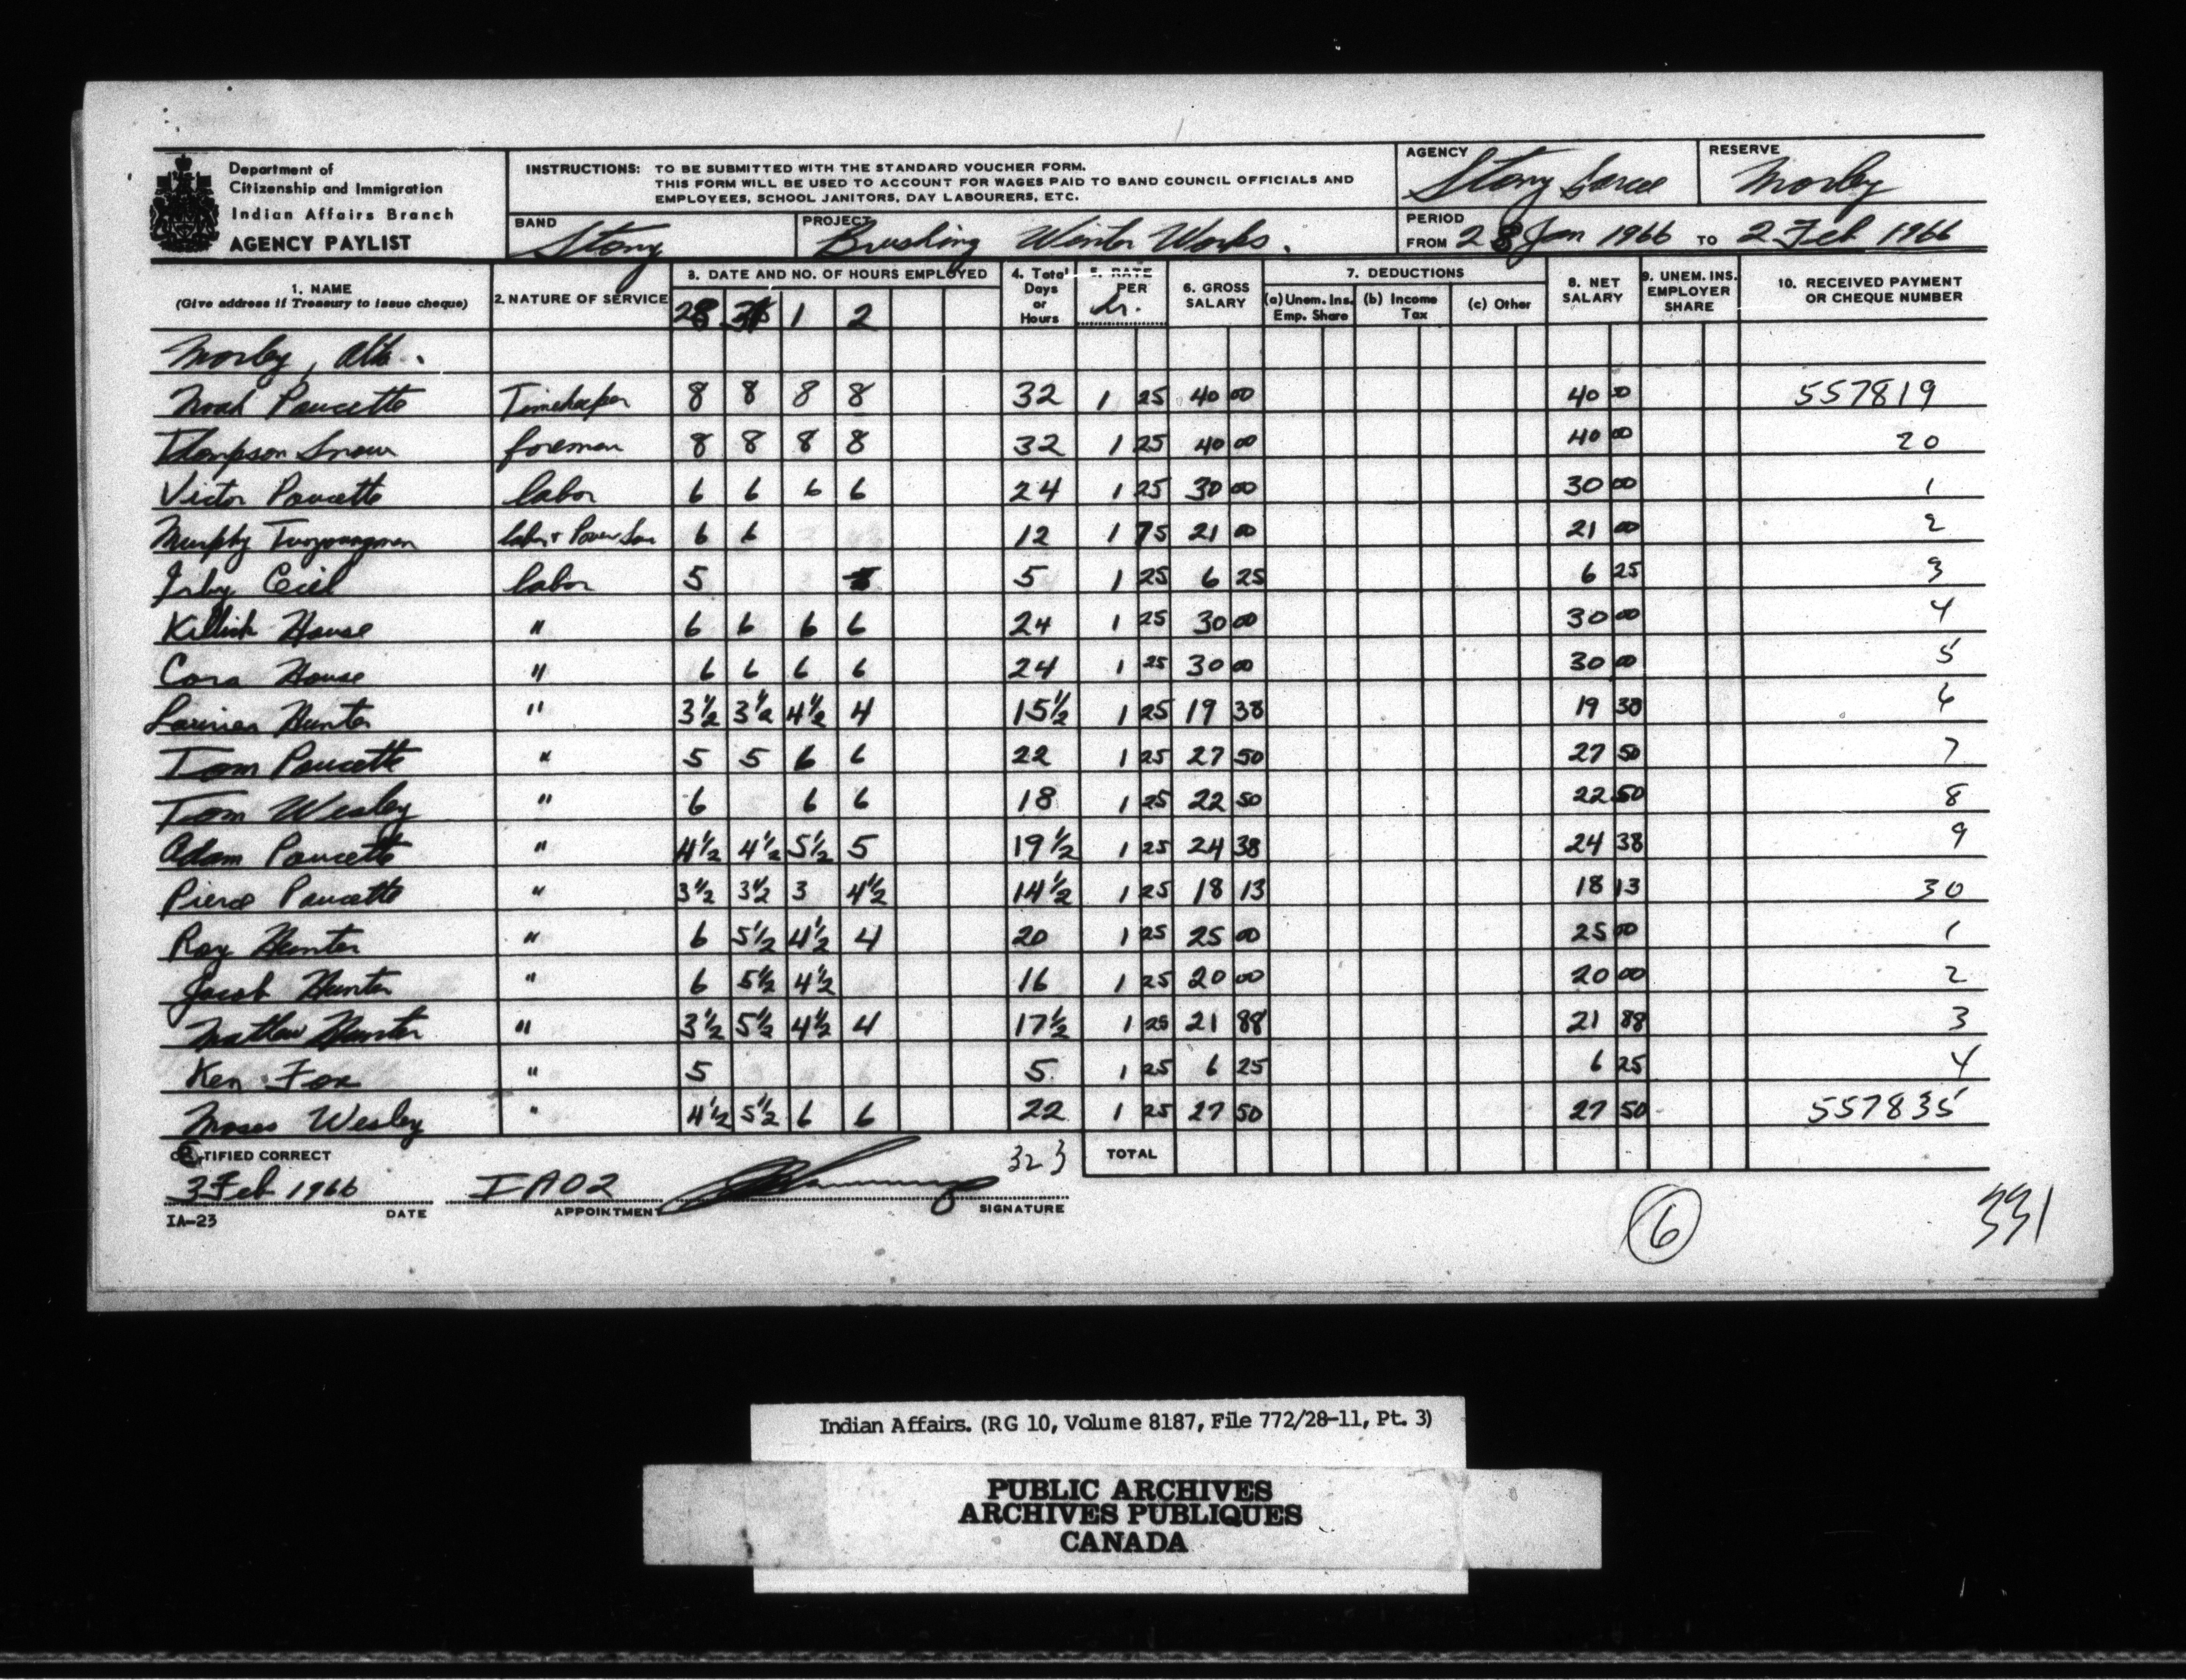 Department of
Citizenship and Immigration
Indian Affairs Branch
AGENCY PAYLIST
INSTRUCTIONS: TO BE SUBMITTED WITH THE STANDARD VOUCHER FORM.
THIS FORM WILL BE USED TO ACCOUNT FOR WAGES PAID TO BAND COUNCIL OFFICIALS AND
EMPLOYEES, SCHOOL JANITORS, DAY LABOURERS, ETC.
AGENCY Stony Sarcee
RESERVE Morley
BAND Stony
PROJECT Brushing Winter Works.
PERIOD
FROM 28 Jan 1966 TO 2 Feb 1966
1. NAME
(Give address if Treasury to issue cheque)
2. NATURE OF SERVICE
3. DATE AND NO. OF HOURS EMPLOYED
28 31 1 2
4. Total Days or Hours
5. RATE PER hr.
6. GROSS SALARY
7. DEDUCTIONS
(a) Unem. Ins. Emp. Share
(b) Income Tax
(c) Other
8. NET SALARY
9. UNEM. INS. EMPLOYER SHARE
10. RECEIVED PAYMENT OR CHEQUE NUMBER
Morley, Alta.
Noah Poucette Timekeeper 8 8 8 8 32 1 25 40 00 40 00 557819
Thompson Snow foreman 8 8 8 8 32 1 25 40 00 40 00 20
Victor Poucette labor 6 6 6 6 24 1 25 30 00 30 00 1
Murphy Twoyoungmen labor + Power Saw 6 6 12 1 75 21 00 21 00 2
Cecil labor 5 5 1 25 6 25 6 25 3
House " 6 6 6 6 24 1 25 30 00 30 00 4
Cora House " 6 6 6 6 24 1 25 30 00 30 00 5
Hunter " 3½ 3½ 4½ 4 15½ 1 25 19 38 19 38 6
Tom Poucette " 5 5 6 6 22 1 25 27 50 27 50 7
Tom Wesley " 6 6 6 18 1 25 22 50 22 50 8
Adam Poucette " 4½ 4½ 5½ 5 19½ 1 25 24 38 24 38 9
Pierre Poucette " 3½ 3½ 3 4½ 14½ 1 25 18 13 18 13 30
Roy Hunter " 6 5½ 4½ 4 20 1 25 25 00 25 00 1
Jacob Hunter " 6 5½ 4½ 16 1 25 20 00 20 00 2
Matlew Hunter " 3½ 5½ 4½ 4 17½ 1 25 21 88 21 88 3
Ken Fox " 5 5 1 25 6 25 6 25 4
Moses Wesley " 4½ 5½ 6 6 22 1 25 27 50 27 50 557835
CERTIFIED CORRECT
323
TOTAL
3 Feb 1966 IA02
DATE APPOINTMENT SIGNATURE
IA-23
6
331
Indian Affairs. (RG 10, Volume 8187, File 772/28-11, Pt. 3)
PUBLIC ARCHIVES
ARCHIVES PUBLIQUES
CANADA